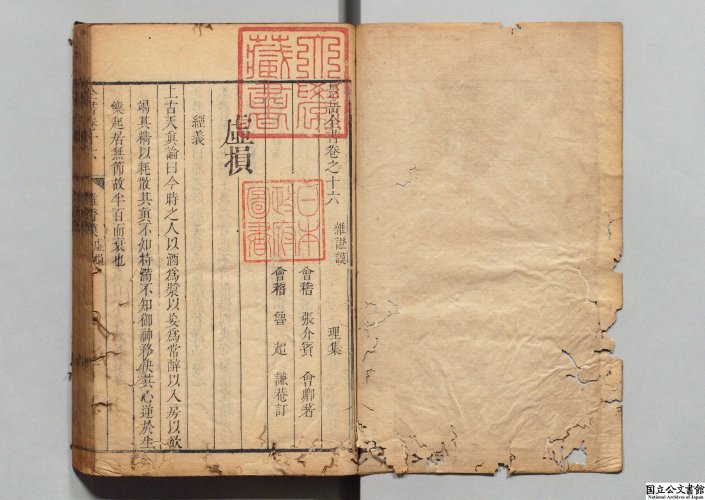 景岳全書卷之十六 雜證謨 理集
會稽 張介賓 會卿著
會稽 魯超 謙菴訂
虛損
經義
上古天真論曰今時之人以酒為漿以妄為常醉以入房以飲
竭其精以耗散其真不知持滿不知御神務快其心逆於生
樂起居無節故半百而衰也
日本政府圖書
國立公文書館
National Archives of Japan